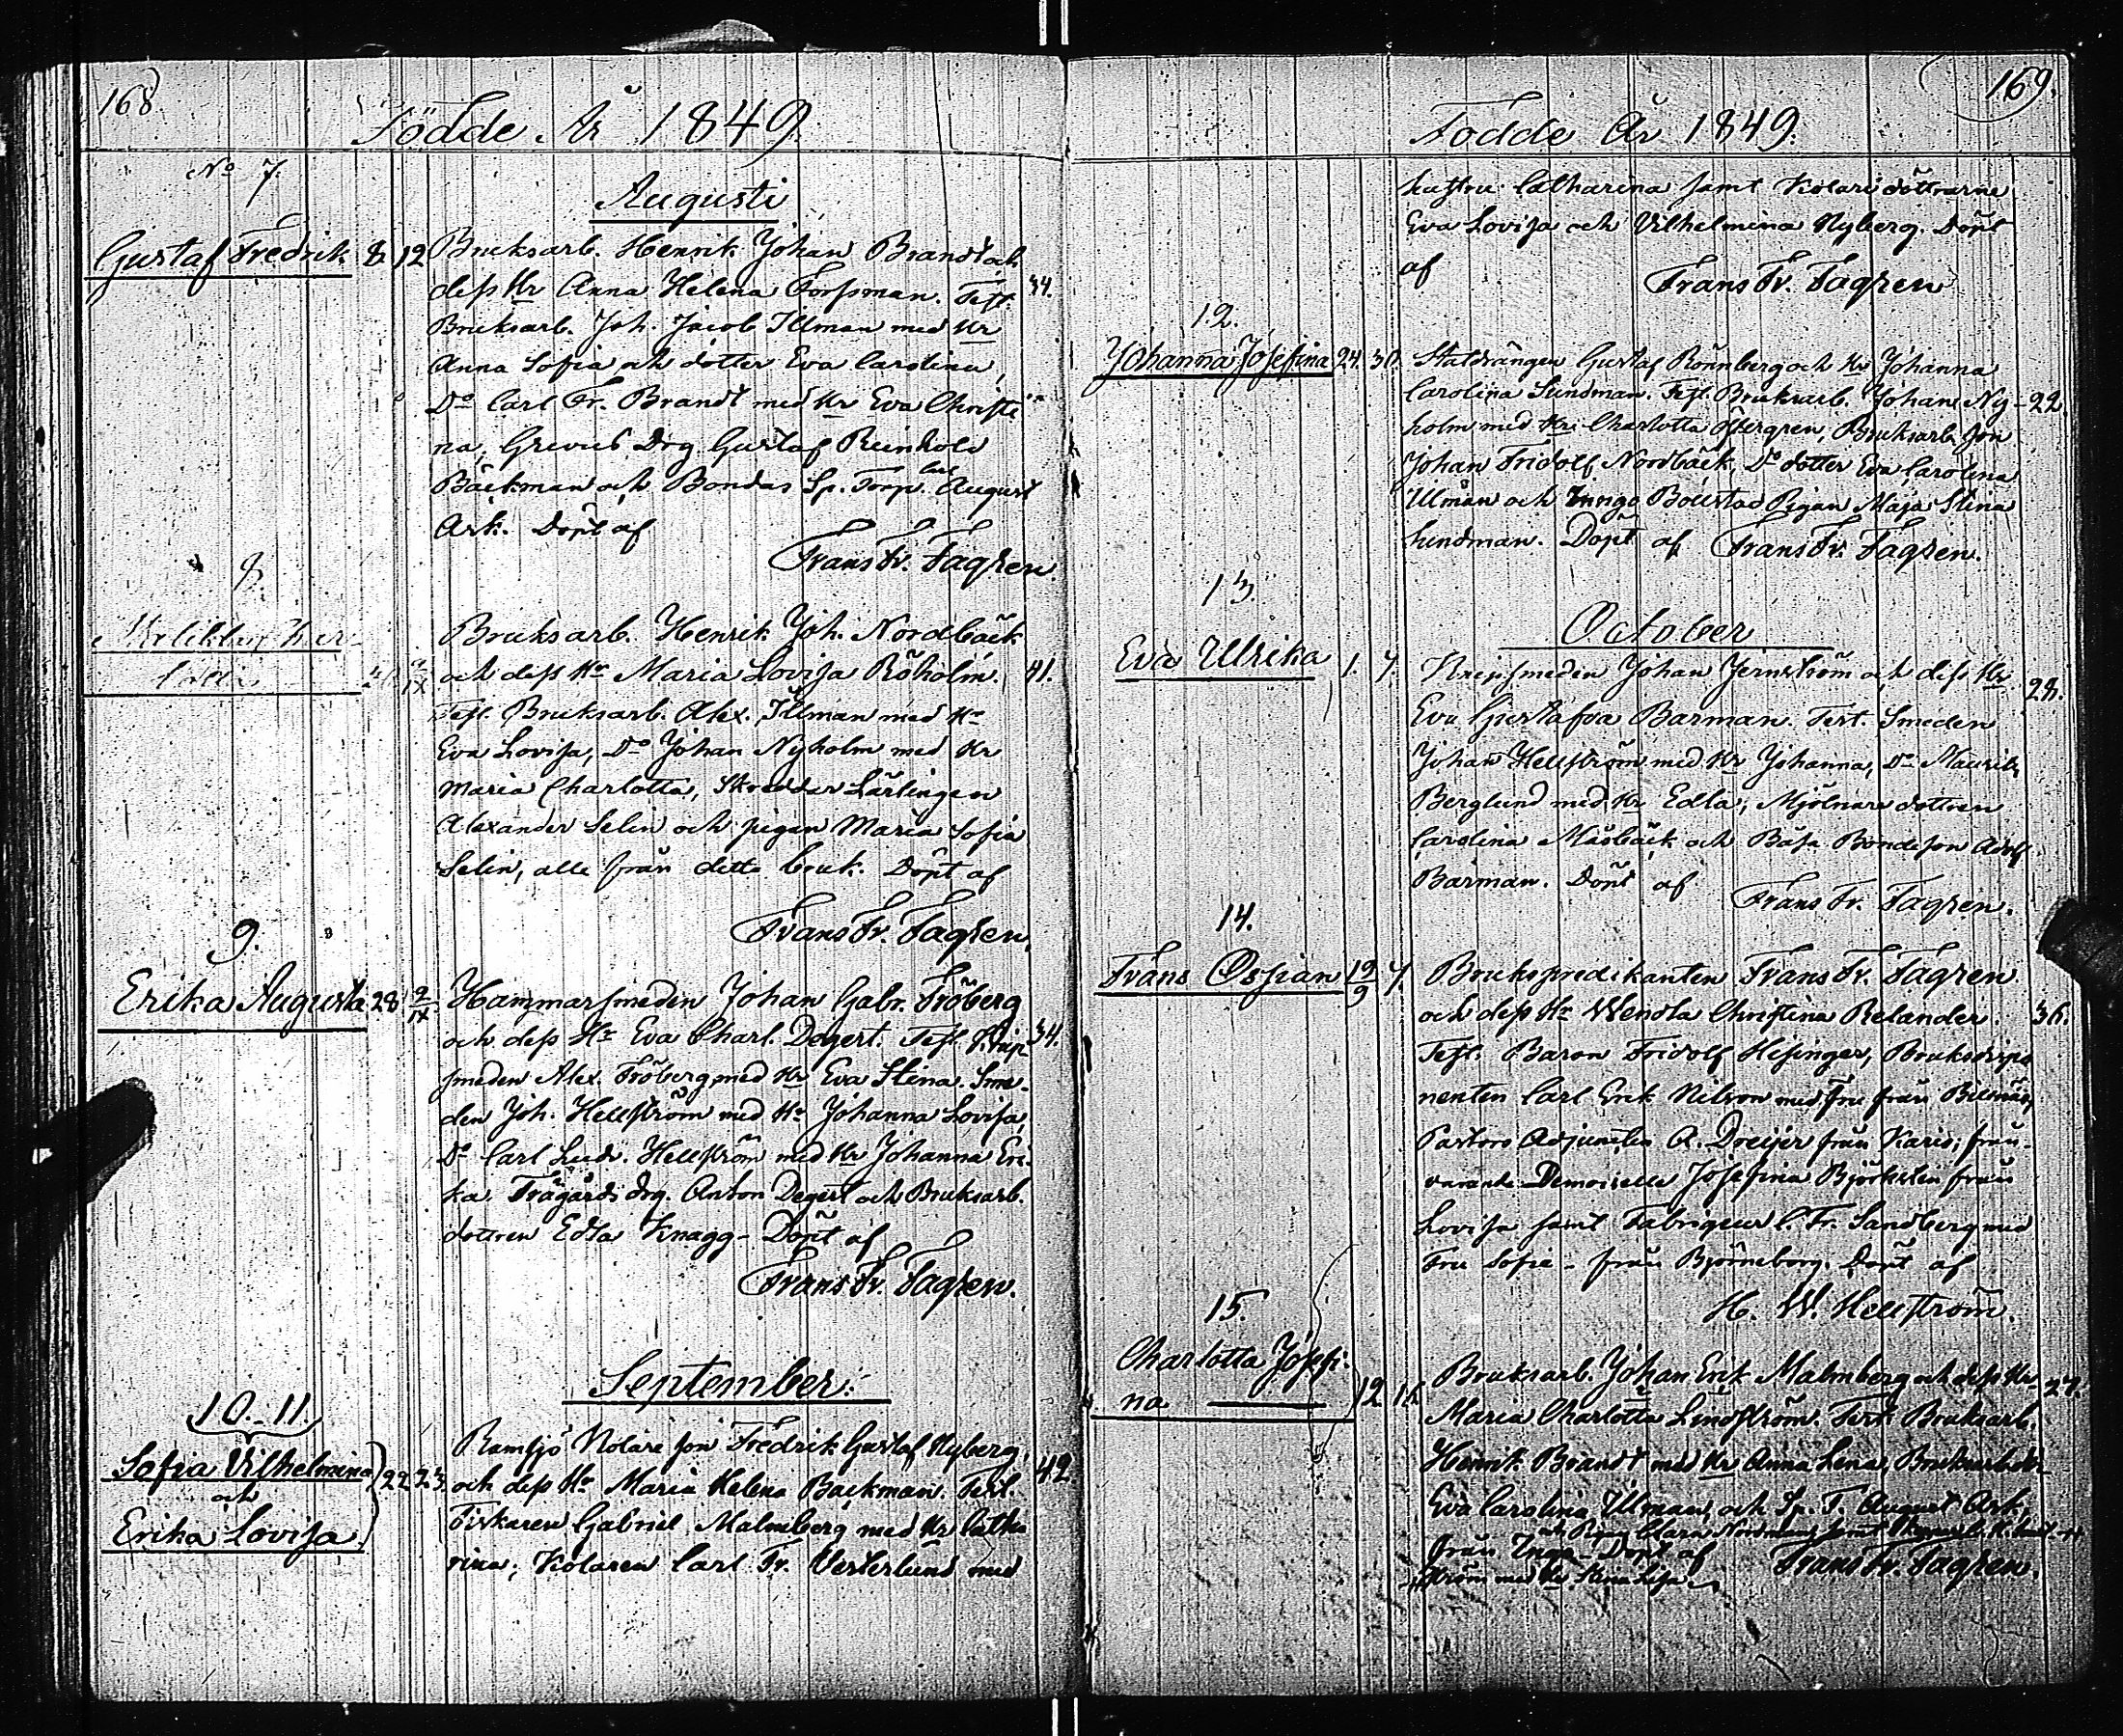 168
Födde År 1849.
No 7.
Augusti
Gustaf Fredrik 8 12 Bruksarb. Henrik Johan Brandt och
dess Hr Anna Helena Forssman. Test. 34.
Bruksarb. Joh. Jacob Illman med Hr
Anna Sofia och dotter Eva Carolina,
Do Carl Fr. Brandt med Hr Eva Christi
na, Drg Gustaf Reinhold
Bäckman och Bondas Sp. Torp. August
Ark. Döpt af
Frans Fr. Fagren
8.
Bruksarb. Henrik Joh. Nordbäck
och dess Hr Maria Lovisa Röholm. 41.
Test. Bruksarb. Alex. Illman med Hr
Eva Lovisa, Do Johan Nyholm med Hr
Maria Charlotta, Skreddar Lärlingen
Alexander Selin och pigan Maria Sofia
Selin, alle från detta bruk. Döpt af
Frans Fr. Fagren.
9.
Erika Augusta 28 9/IX Hammarsmeden Johan Gabr. Fröberg
och dess Hr Eva Charl. Degert. Test. 34.
smeden Alex. Fröberg med Hr Eva Stina. Sme-
den Joh. Hellström med Hr Johanna Lovisa,
Do Carl Ludv. Hellström med Hr Johanna Eri-
ka. Trägårds drg. Anton Degert och Bruksarb.
dottren Edla Knagg - Döpt af
Frans Fr. Fagren.
September.
10.-11.
Sofia Vilhelmina 22 23. Ramsjö Nolare son Fredrik Gustaf Nyberg
och
och dess Hr Maria Helena Backman. Test. 42
Erika Lovisa.
Fiskaren Gabriel Malmberg med Hr Catha
rina; Kolaren Carl Fr. Vesterlund med
169.
Födde År 1849.
hustru Catharina samt Kolare döttrarne
Eva Lovisa och Vilhelmina Nyberg. Döpt
af
Frans Fr. Fagren
12.
Johanna Josefina 24. 30. Staldrängen Gustaf Rönnberg och Hr Johanna
Carolina Sundman. Test. Bruksarb. Johan Ny- 22.
holm med Hr Charlotta Öbergren, Bruksarb. son
Johan Fridolf Nordbäck, Do dotter Eva Carolina
Illman och Ingo Bollstad Pigan Maja Stina
Lundman. Döpt af Frans Fr. Fagren.
13.
October
Eva Ulrika 1. 7. Johan Jernström och dess Hr 28.
Eva Gustafva Barman. Test. Smeden
Johan Hellström med Hr Johanna, Do Maurits
Berglund med Hr Edla, Mjölnare dottren
Carolina Måsbäck och Båsa Bondeson Adolf
Barman. Döpt af
Frans Fr. Fagren.
14.
Frans Ossian 19/9 7. Brukspredikanten Frans Fr. Fagren
och dess Hr Wendla Christina Relander. 36.
Test. Baron Fridolf Hisinger, Bruksdispo
nenten Carl Erik Nilson med Fru från Billnäs,
Pastors Adjuncten A. Dreijer från Karis; från-
varande Demoiselle Josefina Björksten från
Lovisa samt Fabriqeur C. Fr. Sandberg med
Fru Sofie - från Björneborg. Döpt af
H. W. Hellström.
15.
Charlotta Josefi-
na 12 16. Bruksarb. Johan Erik Malmberg och dess Hr 27.
Maria Charlotta Lindström. Test. Bruksarb.
Henrik Brandt med Hr Anna Lena, Bruksarb.
Eva Carolina Illman, och Sp. T. August Ark
och Pigan Clara
från Inga - Döpt af Frans Fr. Fagren.
ström med Hr Lisa